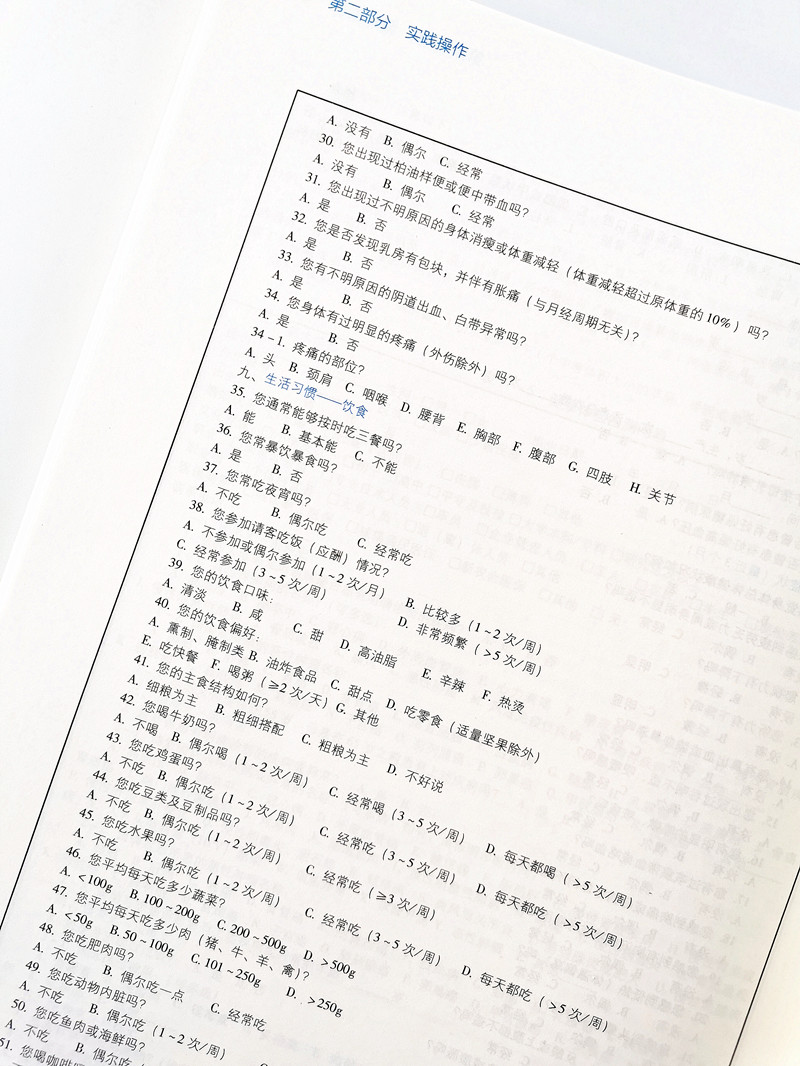 第二部分 实践操作
A. 没有 B. 偶尔 C. 经常
30. 您出现过柏油样便或便中带血吗？
A. 没有 B. 偶尔 C. 经常
31. 您出现过不明原因的身体消瘦或体重减轻（体重减轻超过原体重的10%）吗？
A. 是 B. 否
32. 您是否发现乳房有包块，并伴有胀痛（与月经周期无关）？
A. 是 B. 否
33. 您有不明原因的阴道出血、白带异常吗？
A. 是 B. 否
34. 您身体有过明显的疼痛（外伤除外）吗？
A. 是 B. 否
34-1. 疼痛的部位？
A. 头 B. 颈肩 C. 咽喉 D. 腰背 E. 胸部 F. 腹部 G. 四肢 H. 关节
九、生活习惯——饮食
35. 您通常能够按时吃三餐吗？
A. 能 B. 基本能 C. 不能
36. 您常暴饮暴食吗？
A. 是 B. 否
37. 您常吃夜宵吗？
A. 不吃 B. 偶尔吃 C. 经常吃
38. 您参加请客吃饭（应酬）情况？
A. 不参加或偶尔参加（1~2次/月） B. 比较多（1~2次/周）
C. 经常参加（3~5次/周） D. 非常频繁（>5次/周）
39. 您的饮食口味：
A. 清淡 B. 咸 C. 甜 D. 高油脂 E. 辛辣 F. 热烫
40. 您的饮食偏好：
A. 熏制、腌制类 B. 油炸食品 C. 甜点 D. 吃零食（适量坚果除外）
E. 吃快餐 F. 喝粥（≥2次/天）G. 其他
41. 您的主食结构如何？
A. 细粮为主 B. 粗细搭配 C. 粗粮为主 D. 不好说
42. 您喝牛奶吗？
A. 不喝 B. 偶尔喝（1~2次/周） C. 经常喝（3~5次/周） D. 每天都喝（>5次/周）
43. 您吃鸡蛋吗？
A. 不吃 B. 偶尔吃（1~2次/周） C. 经常吃（3~5次/周） D. 每天都吃（>5次/周）
44. 您吃豆类及豆制品吗？
A. 不吃 B. 偶尔吃（1~2次/周） C. 经常吃（≥3次/周）
45. 您吃水果吗？
A. 不吃 B. 偶尔吃（1~2次/周） C. 经常吃（3~5次/周） D. 每天都吃（>5次/周）
46. 您平均每天吃多少蔬菜？
A. <100g B. 100~200g C. 200~500g D. >500g
47. 您平均每天吃多少肉（猪、牛、羊、禽）？
A. <50g B. 50~100g C. 101~250g D. >250g
48. 您吃肥肉吗？
A. 不吃 B. 偶尔吃一点 C. 经常吃
49. 您吃动物内脏吗？
A. 不吃 B. 偶尔吃（1~2次/周）
50. 您吃鱼肉或海鲜吗？
A. 不吃 B. 偶尔吃
51. 您喝咖啡